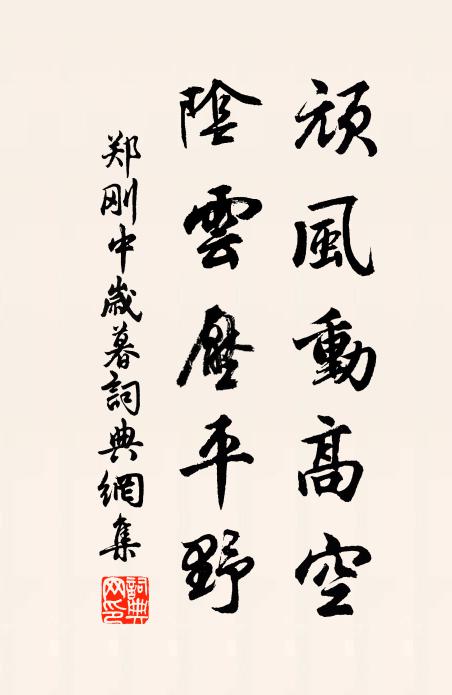 頑風動高空
陰雲壓平野
郑刚中歲暮詞典網集
詞典网印